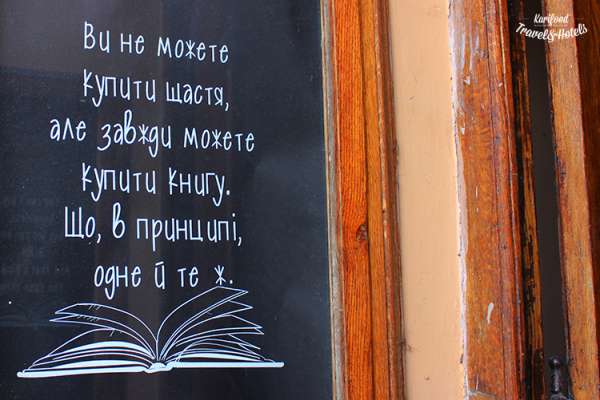 Ви не можете
купити щастя,
але завжди можете
купити книгу.
Що, в принципі,
одне й те ж.
Karifood
Travel&Hotels